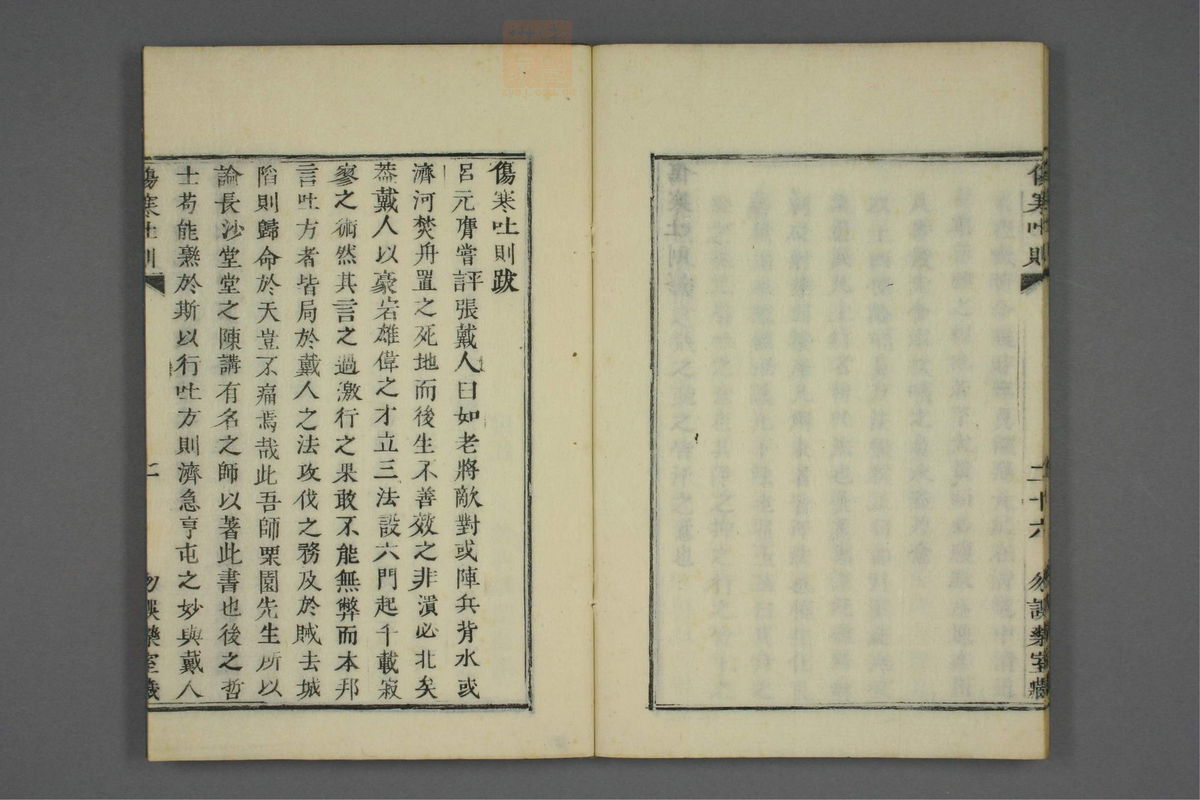 傷寒吐則
二十六
勿誤藥室藏
傷寒吐則跋
呂元膺嘗評張戴人曰如老將敵對或陣兵背水或
濟河焚舟置之死地而後生不善效之非潰必北矣
葢戴人以豪岩雄偉之才立三法設六門起千載寂
寥之術然其言之過激行之果敢不能無弊而本邦
言吐方者皆局於戴人之法攻伐之務及於賊去城
陷則歸命於天豈不痛焉哉此吾師栗園先生所以
論長沙堂堂之陳講有名之師以著此書也後之哲
士苟能樂於斯以行吐方則濟急亨屯之妙與戴人
傷寒吐則
勿誤藥室藏